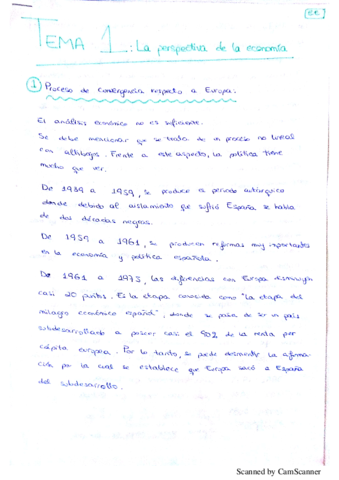 EE
TEMA 1: La perspectiva de la economía
1 Proceso de convergencia respecto a Europa:
El análisis económico no es suficiente.
Se debe mencionar que se trata de un proceso no lineal
con altibajos. Frente a este aspecto, la política tiene
mucho que ver.
De 1939 a 1959, se produce el periodo autárquico
donde debido al aislamiento que sufrió España, se habla
de dos décadas negras.
De 1959 a 1961, se producen reformas muy importantes
en la economía y política española.
De 1961 a 1973, las diferencias con Europa disminuyen
casi 20 puntos. Es la etapa conocida como "la etapa del
milagro económico español", donde se pasa de ser un país
subdesarrollado a poseer casi el 80% de la renta per
cápita europea. Por lo tanto, se puede desmentir la afirma-
ción por la cual se establece que Europa sacó a España
del subdesarrollo.
Scanned by CamScanner